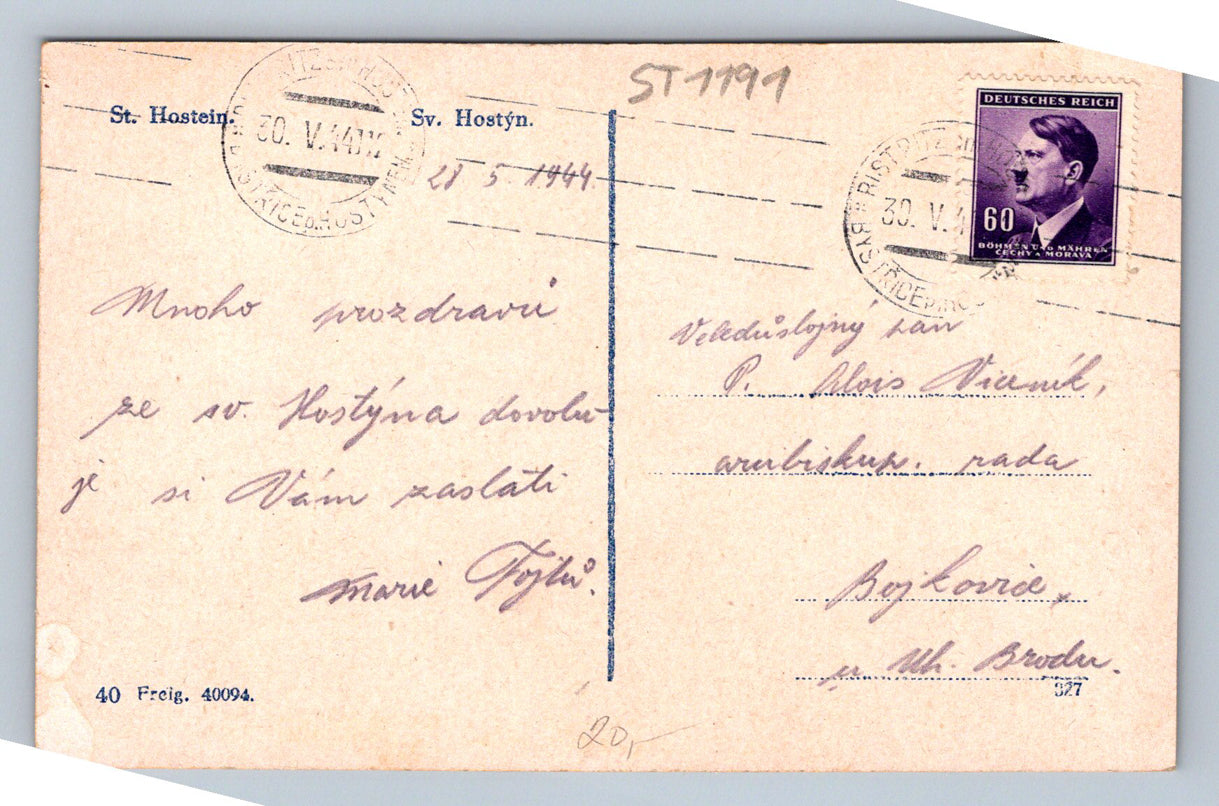 ST 1191
St. Hostein.
Sv. Hostýn.
30. V. 44
28 5. 1944.
Mnoho pozdravů
ze sv. Hostýna dovolu-
je si Vám zaslati
Marie Fojtů.
40 Freig. 40094.
20,-
DEUTSCHES REICH
60
BÖHMEN UND MÄHREN
ČECHY A MORAVA
30. V. 4
Veledůstojný pan
P. Alois
arcibiskup. rada
Bojkovice,
u Uh. Brodu.
327